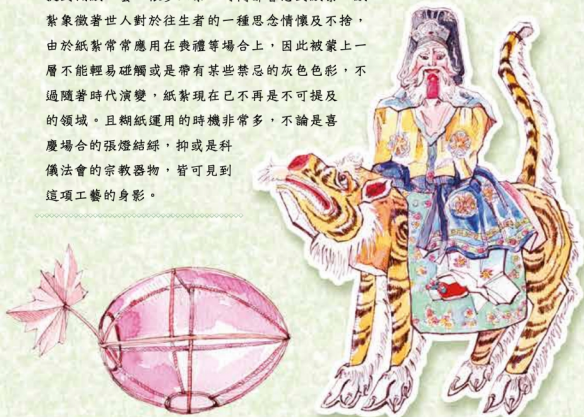 紮象徵著世人對於往生者的一種思念情懷及不捨，
由於紙紮常常應用在喪禮等場合上，因此被蒙上一
層不能輕易碰觸或是帶有某些禁忌的灰色色彩，不
過隨著時代演變，紙紮現在已不再是不可提及
的領域。且糊紙運用的時機非常多，不論是喜
慶場合的張燈結綵，抑或是科
儀法會的宗教器物，皆可見到
這項工藝的身影。